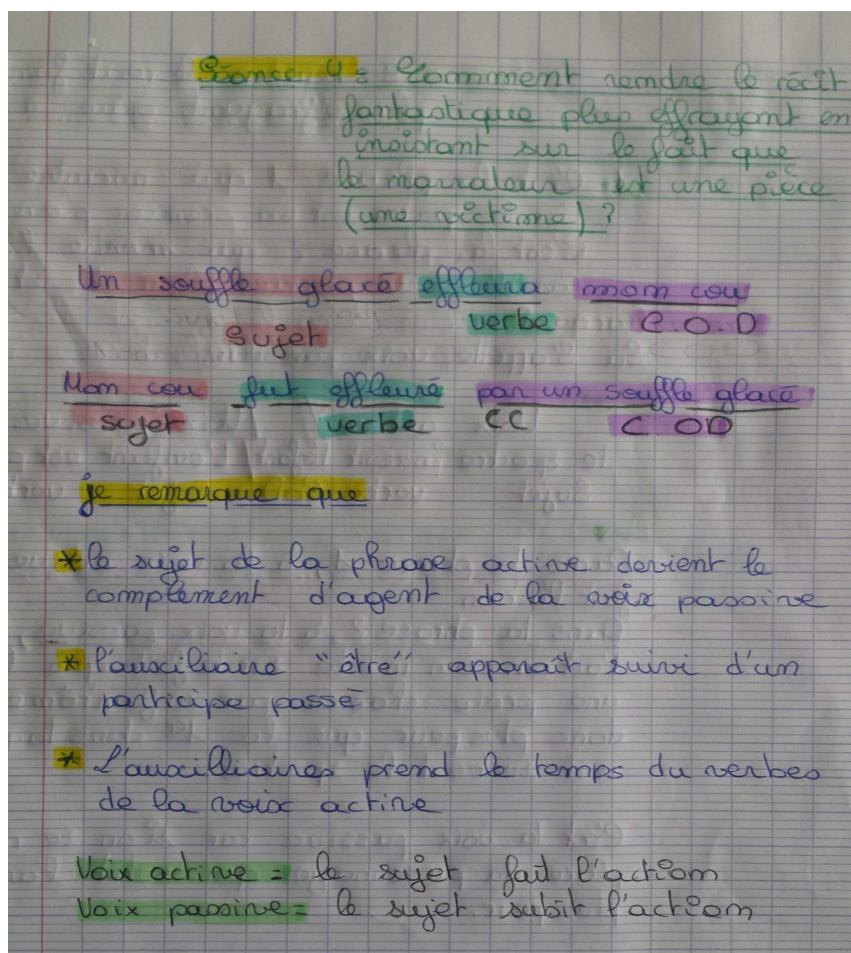 Séance 4 : Comment rendre le récit
fantastique plus effrayant en
insistant sur le fait que
le narrateur est une pièce
(une victime) ?
Un souffle glacé effleura mon cou
sujet verbe C.O.D
Mon cou fut effleuré par un souffle glacé
sujet verbe CC C.OD
je remarque que
* le sujet de la phrase active devient le
complément d'agent de la voix passive
* l'auxiliaire "être" apparaît suivi d'un
participe passé
* L'auxilliaires prend le temps du verbes
de la voix active
Voix active = le sujet fait l'action
Voix passive = le sujet subit l'action